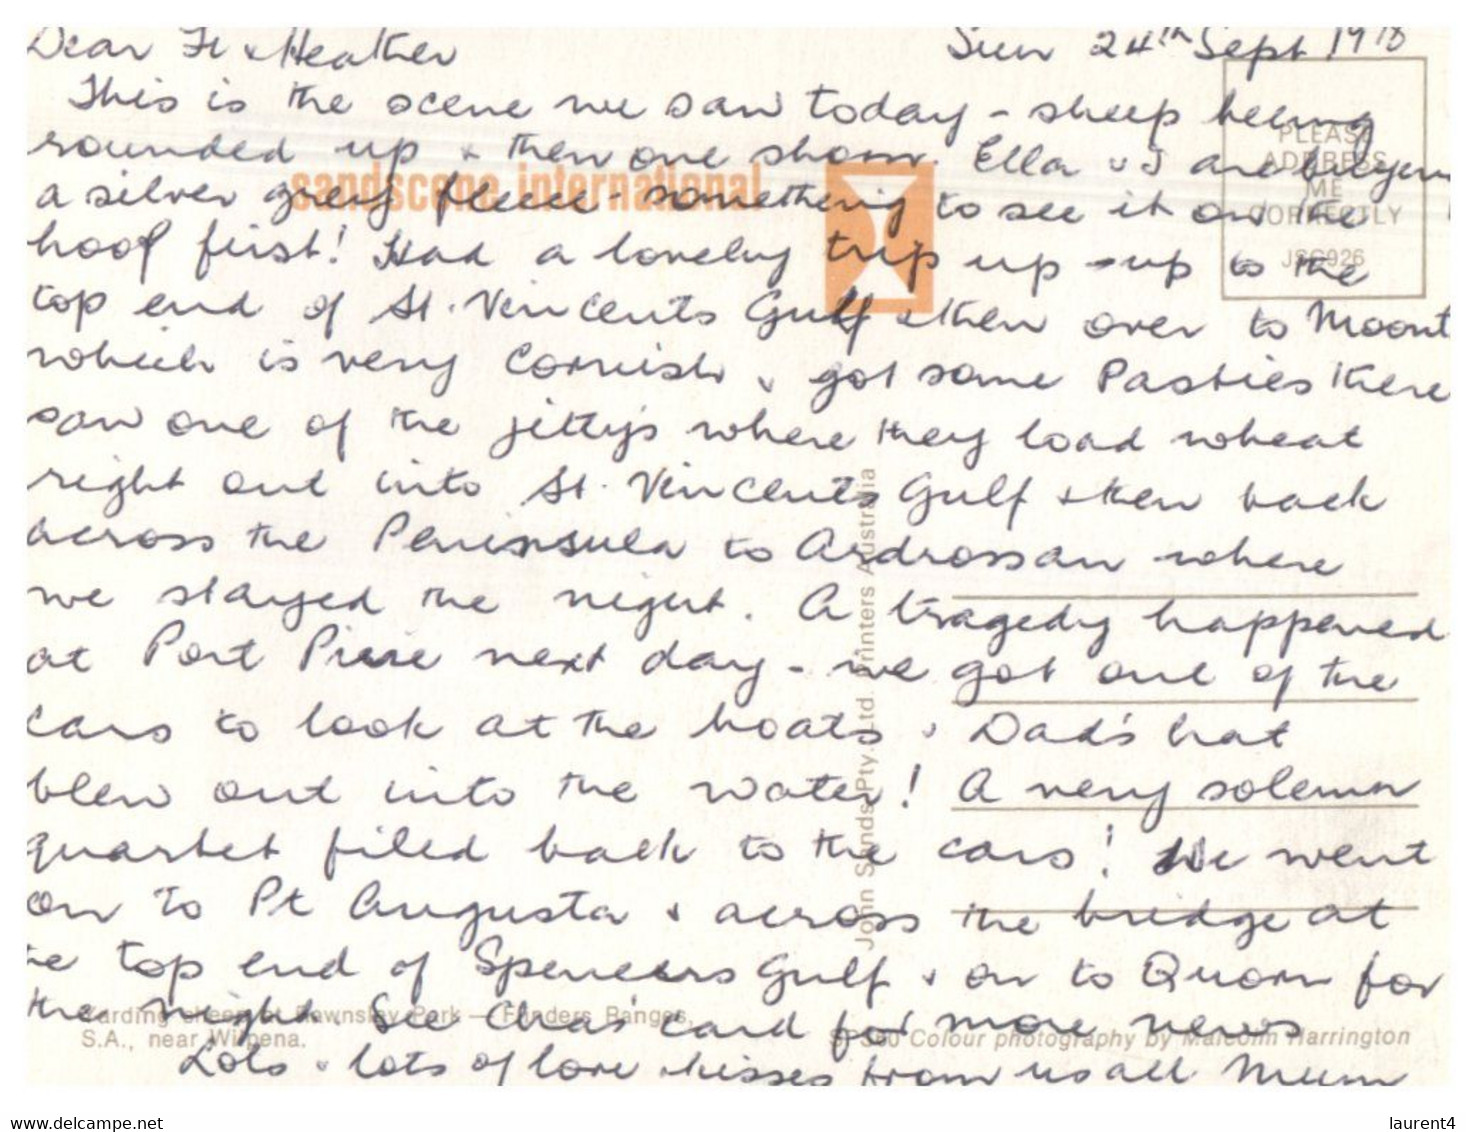 Dear Fi & Heather Sun 24th Sept 1978
This is the scene we saw today - sheep being
rounded up & then one shorn. Ella & I are buying
a silver grey fleece - something to see it on the
hoof first! Had a lovely trip up - up to the
top end of St. Vincents Gulf & then over to Moont
which is very Cornish & got some Pasties there
saw one of the jetty's where they load wheat
right out into St. Vincents Gulf & then back
across the Peninsula to Ardrossan where
we stayed the night. A tragedy happened
at Port Pirie next day - we got out of the
cars to look at the boats & Dad's hat
blew out into the water! A very solemn
quartet filed back to the cars! We went
on to Pt Augusta & across the bridge at
the top end of Spencers Gulf & on to Quorn for
the night. See Chas' card for more news
Lots & lots of love & kisses from us all Mum
PLEASE
ADDRESS
ME
CORRECTLY
JSC926
sandscene international
John Sands Pty. Ltd. Printers Australia
Yarding sheep at Rawnsley Park — Flinders Ranges,
S.A., near Wilpena.
Colour photography by Malcolm Harrington
www.delcampe.net
laurent4